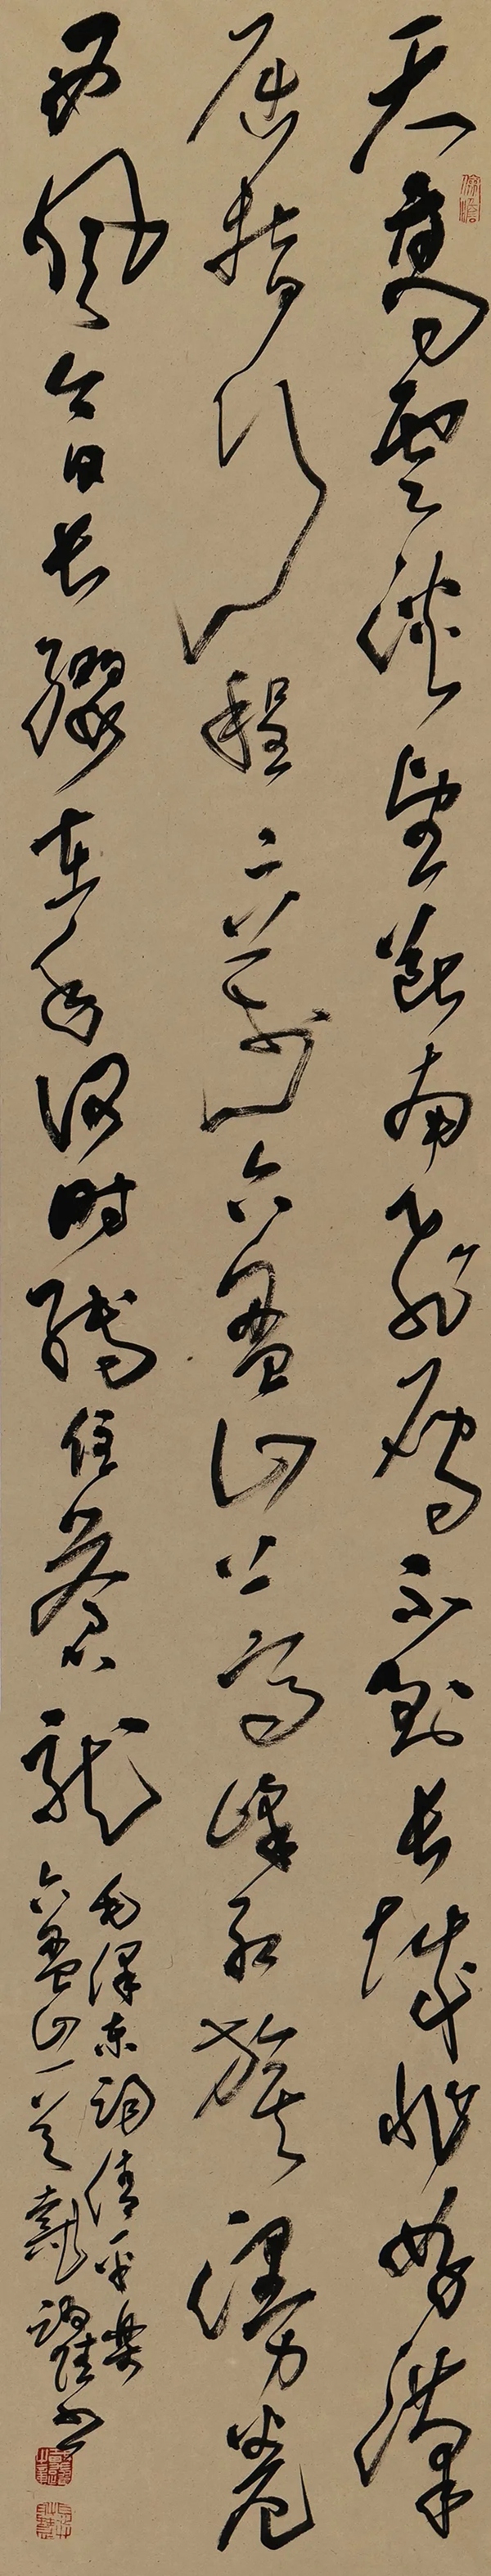 天高雲淡望斷南飛雁不到长城非好漢
屈指行程二萬六盤山上高峰紅旗漫卷
西風今日长纓在手何时縛住蒼龍
毛澤東詞清平樂
六盤山一首戴書